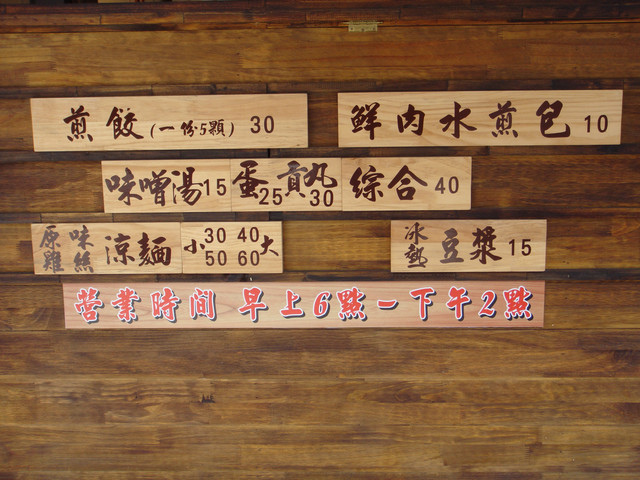 煎餃(一份5顆) 30
鮮肉水煎包 10
味噌湯15 蛋25 貢丸30 綜合 40
原味 雞絲 涼麵 小 30 40 大
50 60
冰熱 豆漿 15
營業時間 早上6點-下午2點